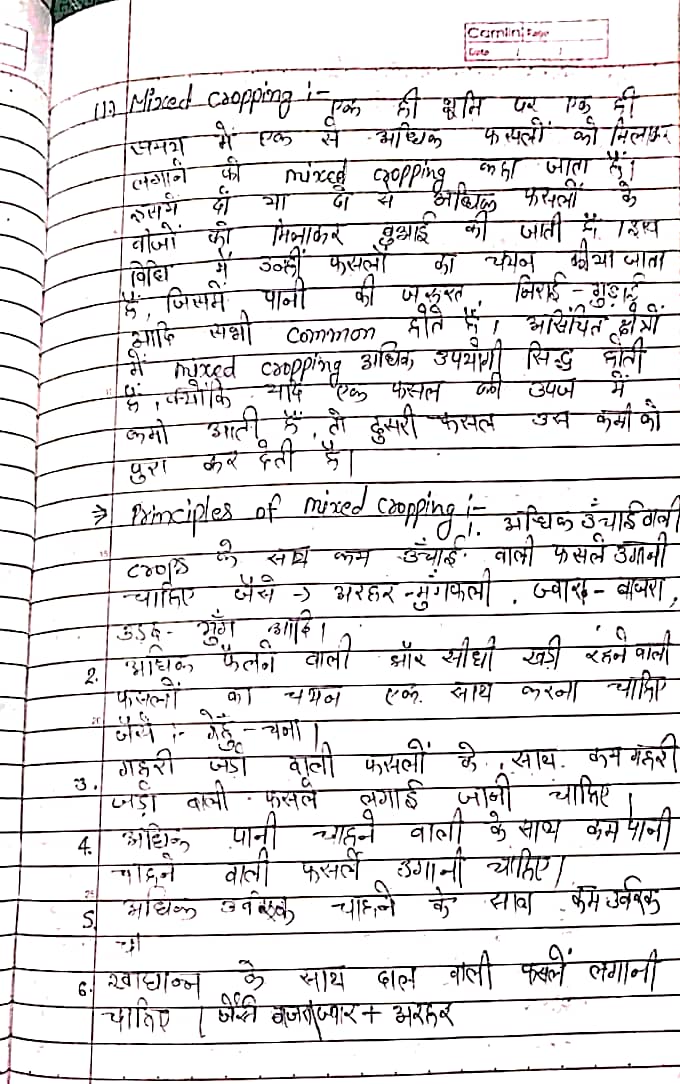 Camlin Page
Date / /
(1) Mixed cropping :- एक ही भूमि पर एक ही
समय में एक से अधिक फसलों को मिलाकर
लगाने को mixed cropping कहा जाता है।
इसमें दो या दो से अधिक फसलों के
बीजों को मिलाकर बुआई की जाती है। इस
विधि में उन्हीं फसलों का चयन कीया जाता
है, जिसमें पानी की जरूरत, निराई-गुड़ाई
आदि सभी common होते है। असिंचित क्षेत्रों
में mixed cropping अधिक उपयोगी सिद्ध होती
है, क्योंकि यदि एक फसल की उपज में
कमी आती है, तो दुसरी फसल उस कमी को
पुरा कर देती है।
⇒ Principles of mixed cropping :- 1. अधिक उँचाई वाली
crops के साथ कम उँचाई वाली फसलें उगानी
चाहिए जैसे → अरहर-मुंगफली, ज्वार-बाजरा,
उड़द-मुँग आदि।
2. अधिक फैलने वाली और सीधी खड़ी रहने वाली
फसलों का चयन एक साथ करना चाहिए
जैसे :- गेहुँ-चना।
3. गहरी जड़ों वाली फसलों के साथ कम गहरी
जड़ों वाली फसलें लगाई जानी चाहिए।
4. अधिक पानी चाहने वाली के साथ कम पानी
चाहने वाली फसलें उगानी चाहिए।
5. अधिक उर्वरक चाहने के साथ कम उर्वरक
चा
6. खाद्यान्न के साथ दाल वाली फसलें लगानी
चाहिए। जैसे बाजरा/ज्वार + अरहर